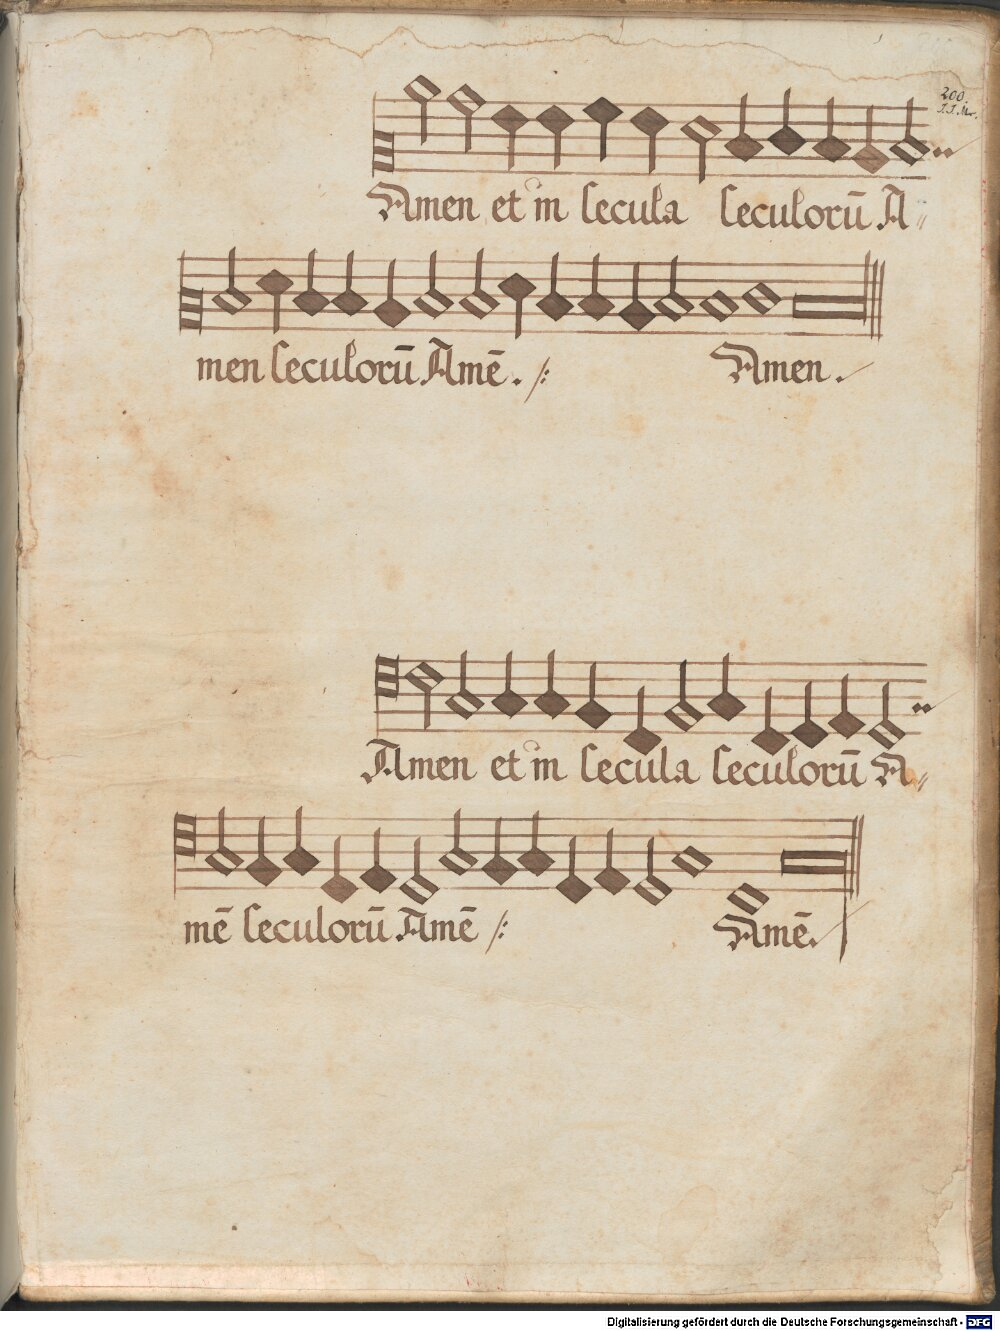 200.
J. J. M.
Amen et in secula seculorũ A〃
men seculorũ Amẽ. /:
Amen.
Amen et in secula seculorũ A〃
mẽ seculorũ Amẽ /:
Amẽ.
Digitalisierung gefördert durch die Deutsche Forschungsgemeinschaft - DFG